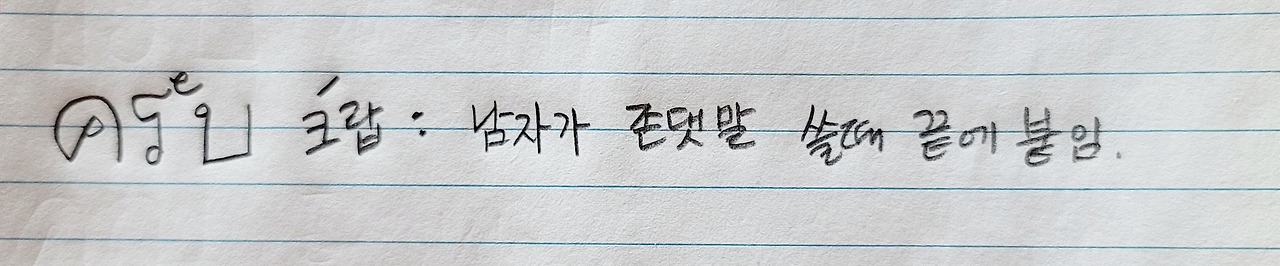 ครับ 크랍 : 남자가 존댓말 쓸때 끝에 붙임.